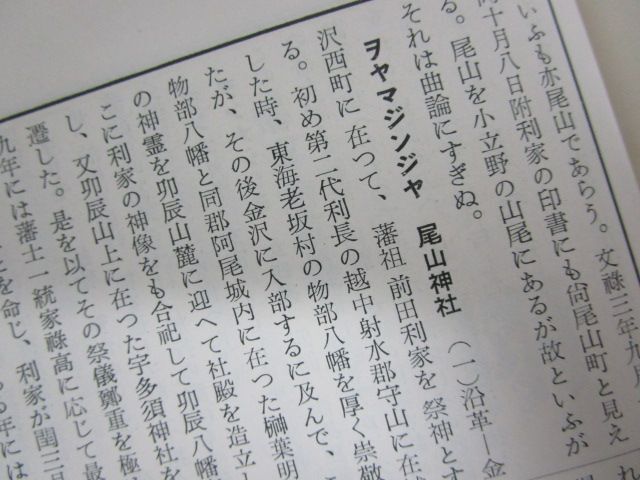 いふも亦尾山であらう。文祿三年九月
十月八日附利家の印書にも尙尾山町と見え
る。尾山を小立野の山尾にあるが故といふが
それは曲論にすぎぬ。
ヲヤマジンジャ 尾山神社 (一)沿革―金
沢西町に在つて、藩祖前田利家を祭神とす
る。初め第二代利長の越中射水郡守山に在城
した時、東海老坂村の物部八幡を厚く崇敬
たが、その後金沢に入部するに及んで、
物部八幡と同郡阿尾城内に在つた榊葉明
の神霊を卯辰山麓に迎へて社殿を造立
こに利家の神像をも合祀して卯辰八幡
し、又卯辰山上に在つた宇多須神社を
遷した。是を以てその祭儀鄭重を極
九年には藩士一統家祿高に応じて最
を命じ、利家が閏三
年には